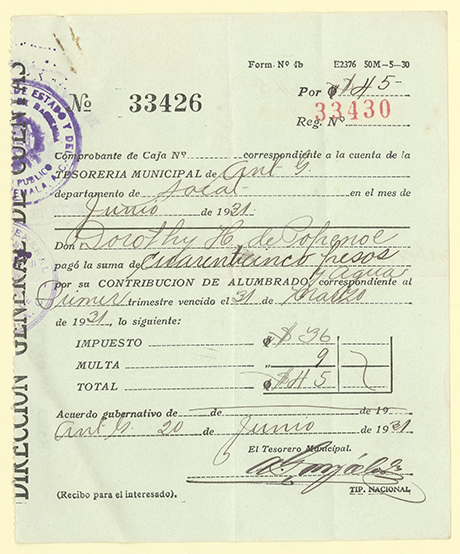 Form. Nº 4b E2376 50M-5-30
Nº 33426
Por $45-
Reg. Nº 33430
Comprobante de Caja Nº correspondiente a la cuenta de la
TESORERIA MUNICIPAL de Ant. G.
departamento de Sacat. en el mes de
Junio de 1931.
Don Dorothy H. de Popenoe
pagó la suma de Cuarenticinco pesos
y agua
por su CONTRIBUCION DE ALUMBRADO, correspondiente al
Primer trimestre vencido el 31 de Marzo
de 1931, lo siguiente:
IMPUESTO $36
MULTA „ 9
TOTAL $45
Acuerdo gubernativo de de de 19
Ant. G. 20 de Junio de 1931
El Tesorero Municipal.
(Recibo para el interesado). TIP. NACIONAL
DIRECCION GENERAL DE CUENTAS
DE ESTADO Y DE
PUBLICO